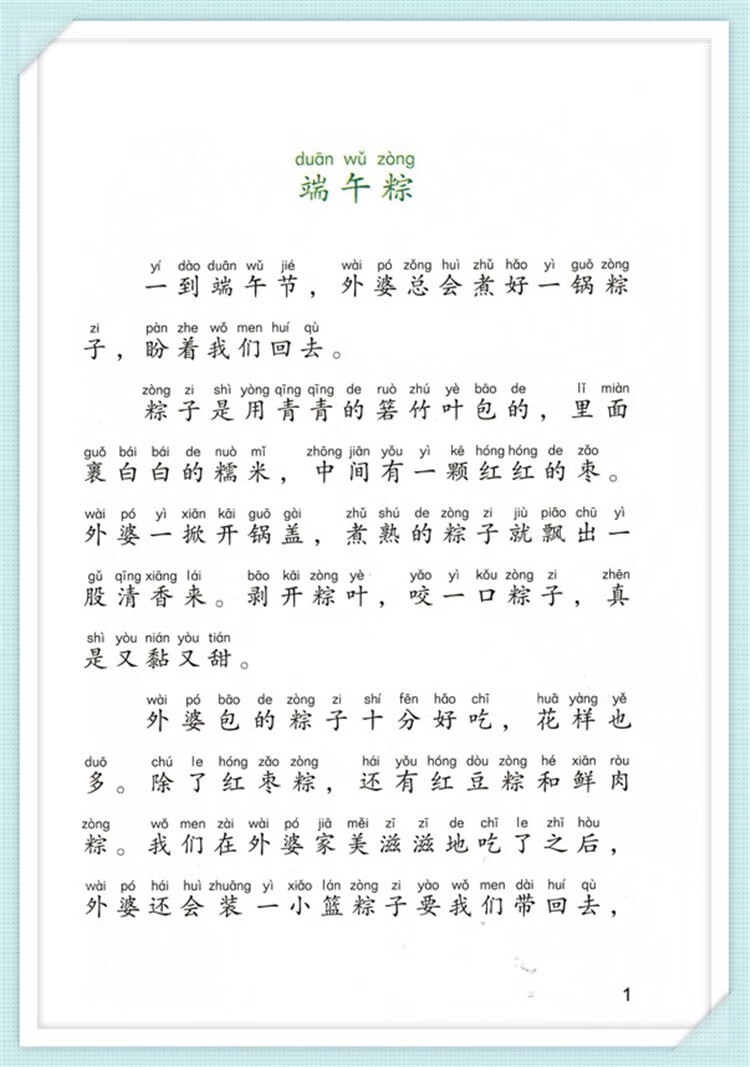 duān wǔ zòng
端午粽
yí dào duān wǔ jié wài pó zǒng huì zhǔ hǎo yì guō zòng
一到端午节，外婆总会煮好一锅粽
zi pàn zhe wǒ men huí qù
子，盼着我们回去。
zòng zi shì yòng qīng qīng de ruò zhú yè bāo de lǐ miàn
粽子是用青青的箬竹叶包的，里面
guǒ bái bái de nuò mǐ zhōng jiān yǒu yì kē hóng hóng de zǎo
裹白白的糯米，中间有一颗红红的枣。
wài pó yì xiān kāi guō gài zhǔ shú de zòng zi jiù piāo chū yì
外婆一掀开锅盖，煮熟的粽子就飘出一
gǔ qīng xiāng lái bāo kāi zòng yè yǎo yì kǒu zòng zi zhēn
股清香来。剥开粽叶，咬一口粽子，真
shì yòu nián yòu tián
是又黏又甜。
wài pó bāo de zòng zi shí fēn hǎo chī huā yàng yě
外婆包的粽子十分好吃，花样也
duō chú le hóng zǎo zòng hái yǒu hóng dòu zòng hé xiān ròu
多。除了红枣粽，还有红豆粽和鲜肉
zòng wǒ men zài wài pó jiā měi zī zī de chī le zhī hòu
粽。我们在外婆家美滋滋地吃了之后，
wài pó hái huì zhuāng yì xiǎo lán zòng zi yào wǒ men dài huí qù
外婆还会装一小篮粽子要我们带回去，
1